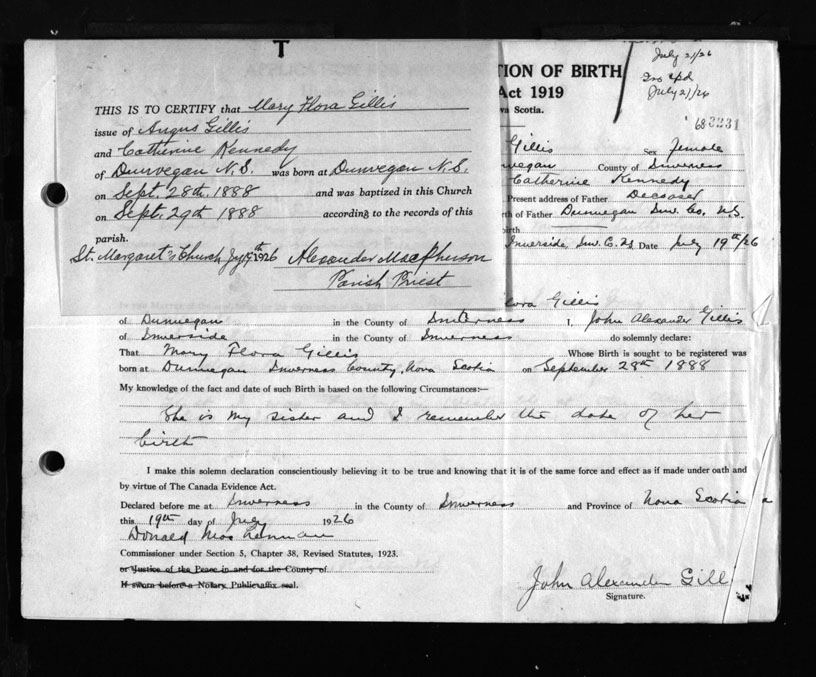 T
THIS IS TO CERTIFY that Mary Flora Gillis
issue of Angus Gillis
and Catherine Kennedy
of Dunvegan N.S. was born at Dunvegan N.S.
on Sept. 28th. 1888 and was baptized in this Church
on Sept. 29th 1888 according to the records of this
parish.
St. Margaret's Church July 19th 1926 Alexander MacPherson
Parish Priest
July 21/26
July 21/26
TION OF BIRTH
Act 1919
va Scotia.
Gillis Sex female
negan County of Inverness
Catherine Kennedy
Present address of Father Deceased
rth of Father Dunvegan Inv. Co. N.S.
birth
Inverside, Inv. C. Date July 19th/26
Flora Gillis
of Dunvegan in the County of Inverness I, John Alexander Gillis
of Inverside in the County of Inverness do solemnly declare:
That Mary Flora Gillis Whose Birth is sought to be registered was
born at Dunvegan Inverness County, Nova Scotia on September 28th 1888
My knowledge of the fact and date of such Birth is based on the following Circumstances:—
She is my sister and I remember the date of her
birth
I make this solemn declaration conscientiously believing it to be true and knowing that it is of the same force and effect as if made under oath and
by virtue of The Canada Evidence Act.
Declared before me at Inverness in the County of Inverness and Province of Nova Scotia
this 19th day of July 1926
Donald MacLennan
Commissioner under Section 5, Chapter 38, Revised Statutes, 1923.
or Justice of the Peace in and for the County of
If sworn before a Notary Public affix seal.
John Alexander Gill
Signature.